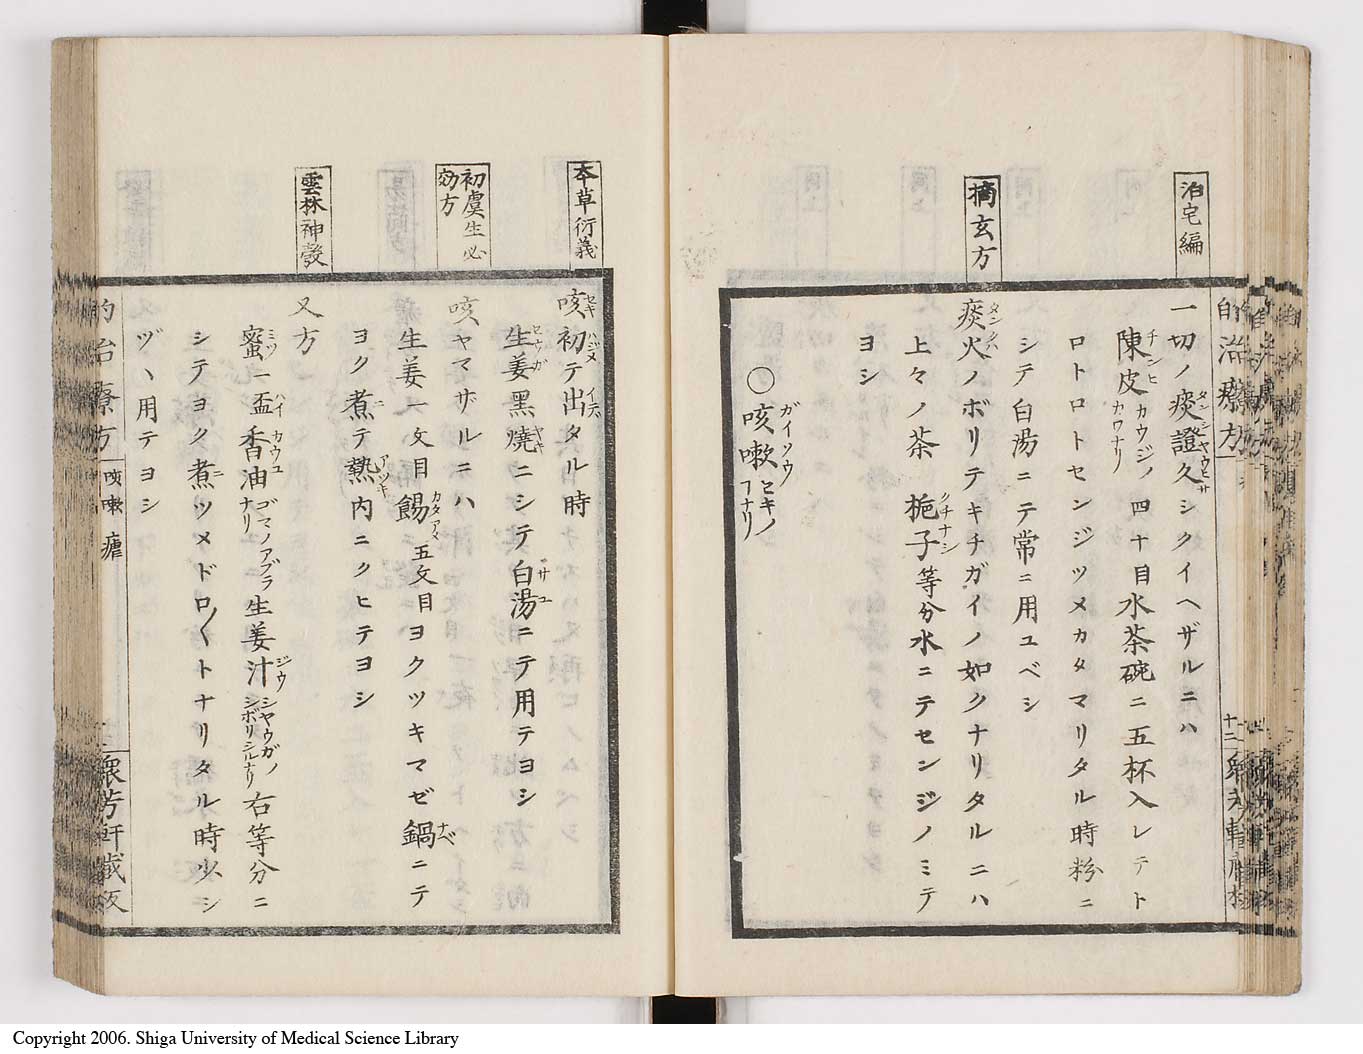 泊宅編
一切ノ痰證久シクイヘザルニハ
陳皮カウジノカワナリ四十目水茶碗ニ五杯入レテト
ロトロトセンジツメカタマリタル時粉ニ
シテ白湯ニテ常ニ用ユベシ
摘玄方
痰火ノボリテキチガイノ如クナリタルニハ
上々ノ茶 梔子等分水ニテセンジノミテ
ヨシ
○咳嗽セキノコナリ
本草衍義
咳初テ出タル時
生姜黑燒ニシテ白湯ニテ用テヨシ
初虞生必効方
咳ヤマザルニハ
生姜一文目餳五文目ヨクツキマゼ鍋ニテ
ヨク煮テ熱内ニクヒテヨシ
雲林神彀
又方
蜜一盃香油ゴマノアブラナリ生姜汁シヤウガノシボリシルナリ右等分ニ
シテヨク煮ツメドロ〱トナリタル時少シ
ヅヽ用テヨシ
的治療方 咳嗽 瘧 十二 衆芳軒藏板
Copyright 2006. Shiga University of Medical Science Library